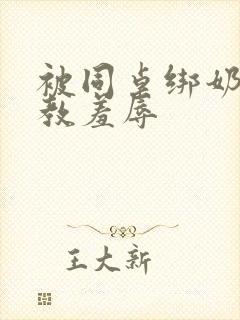 被同桌绑奶
教羞辱
王大新